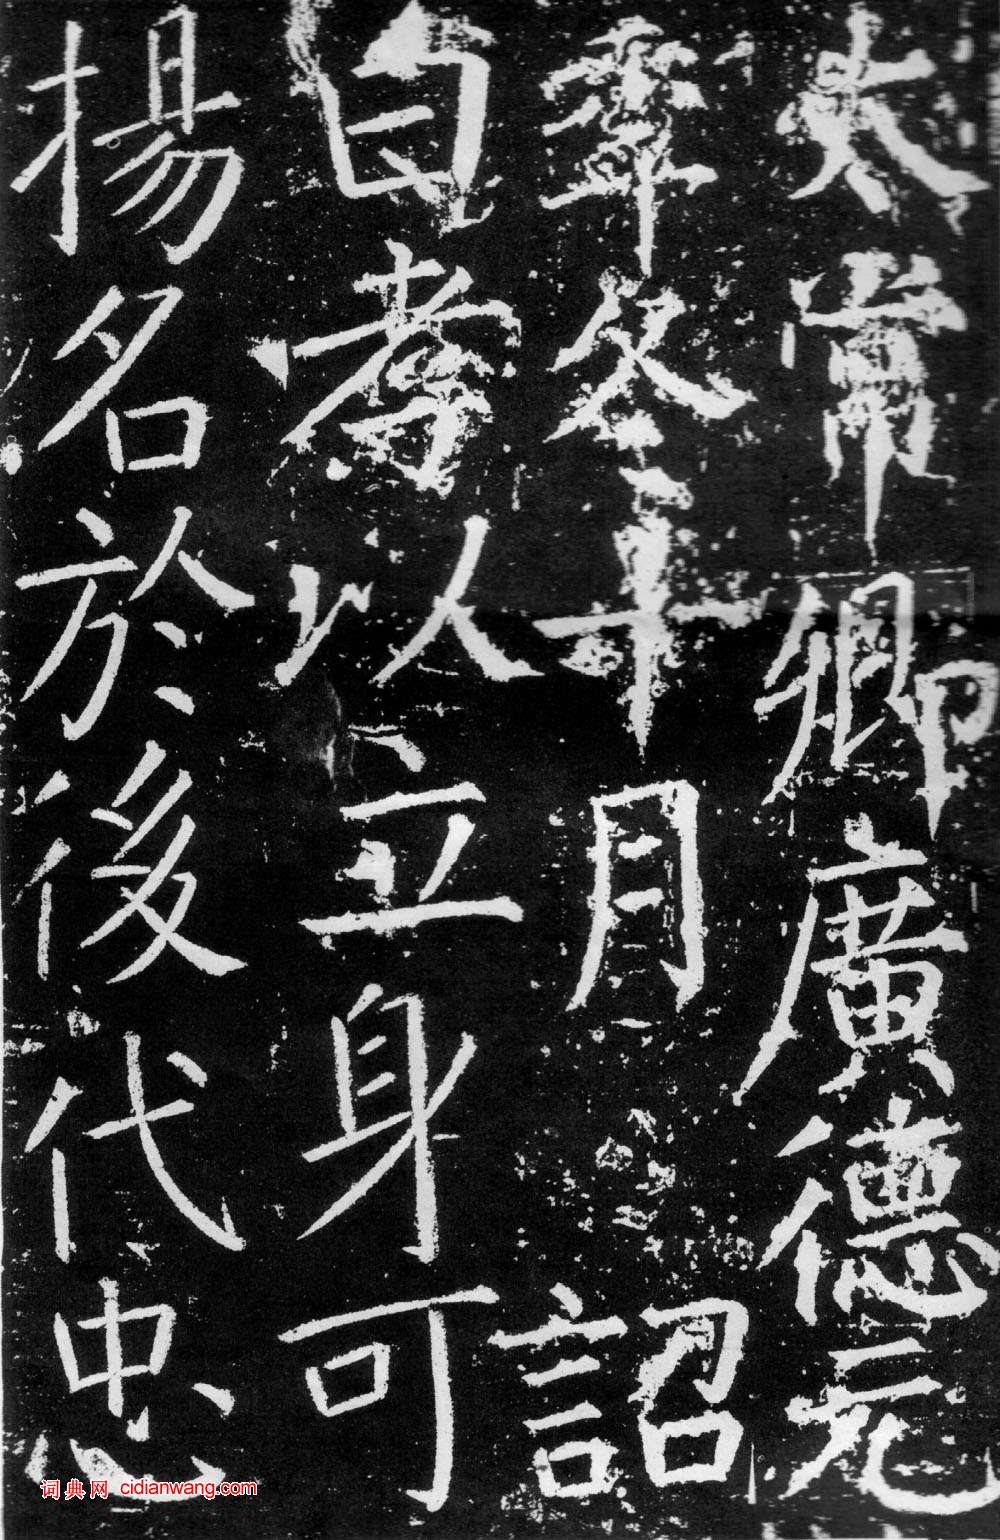 太常卿廣德元
年冬十月詔
曰孝以立身可
揚名於後代忠
词典网 cidianwang.com